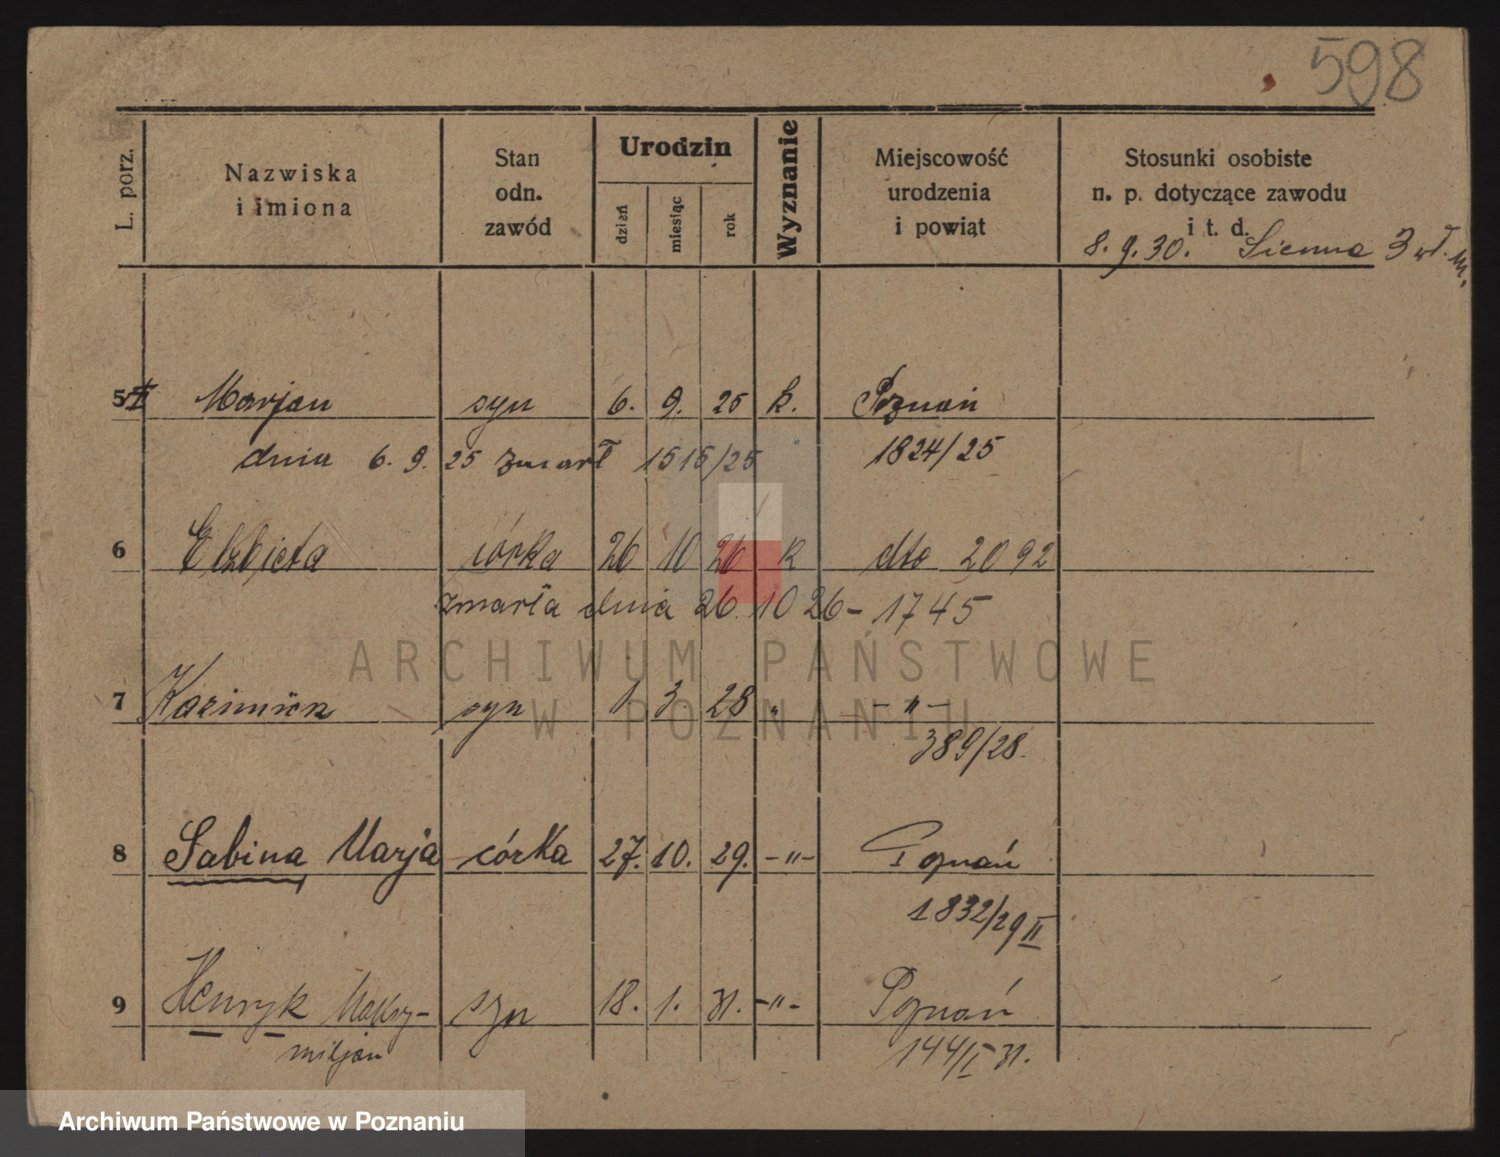 598
L. porz.
Nazwiska
i imiona
Stan
odn.
zawód
Urodzin
dzień
miesiąc
rok
Wyznanie
Miejscowość
urodzenia
i powiąt
Stosunki osobiste
n. p. dotyczące zawodu
i t. d.
8. 9. 30. Sienna 3 wł. m.
5 Marjan syn 6. 9. 25 k. Poznań
dnia 6. 9. 25 zmarł 1515/25 1824/25
6 Elzbieta córka 26 10 26 k dto 2092
zmarła dnia 26. 10 26 - 1745
7 Kazimierz syn 1 3 28 " - " -
389/28.
8 Sabina Marja córka 27. 10. 29. - " - Poznań
1832/29 II
9 Henryk Maksy- syn 18. 1. 31. - " - Poznań
miljan 144/II 31.
ARCHIWUM PAŃSTWOWE
W POZNANIU
Archiwum Państwowe w Poznaniu